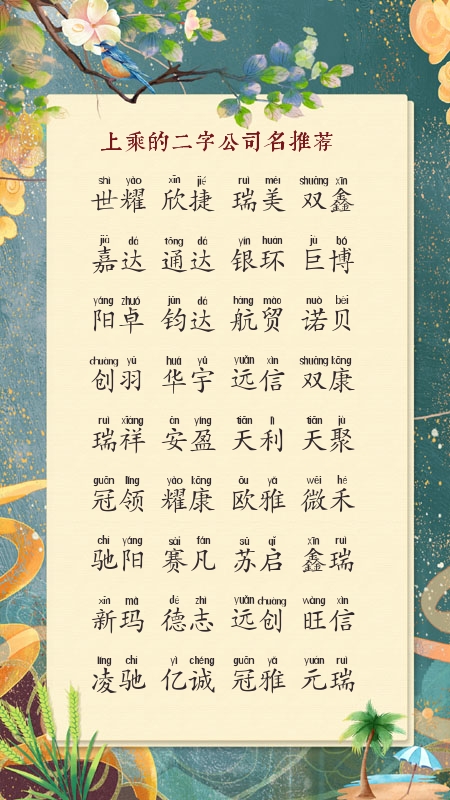 上乘的二字公司名推荐
shì yào xīn jié ruì měi shuāng xīn
世耀 欣捷 瑞美 双鑫
jiā dá tōng dá yín huán jù bó
嘉达 通达 银环 巨博
yáng zhuó jūn dá háng mào nuò bèi
阳卓 钧达 航贸 诺贝
chuàng yǔ huá yǔ yuǎn xìn shuāng kāng
创羽 华宇 远信 双康
ruì xiáng ān yíng tiān lì tiān jù
瑞祥 安盈 天利 天聚
guān lǐng yào kāng ōu yǎ wēi hé
冠领 耀康 欧雅 微禾
chí yáng sài fán sū qǐ xīn ruì
驰阳 赛凡 苏启 鑫瑞
xīn mǎ dé zhì yuǎn chuàng wàng xìn
新玛 德志 远创 旺信
líng chí yì chéng guān yǎ yuán ruì
凌驰 亿诚 冠雅 元瑞